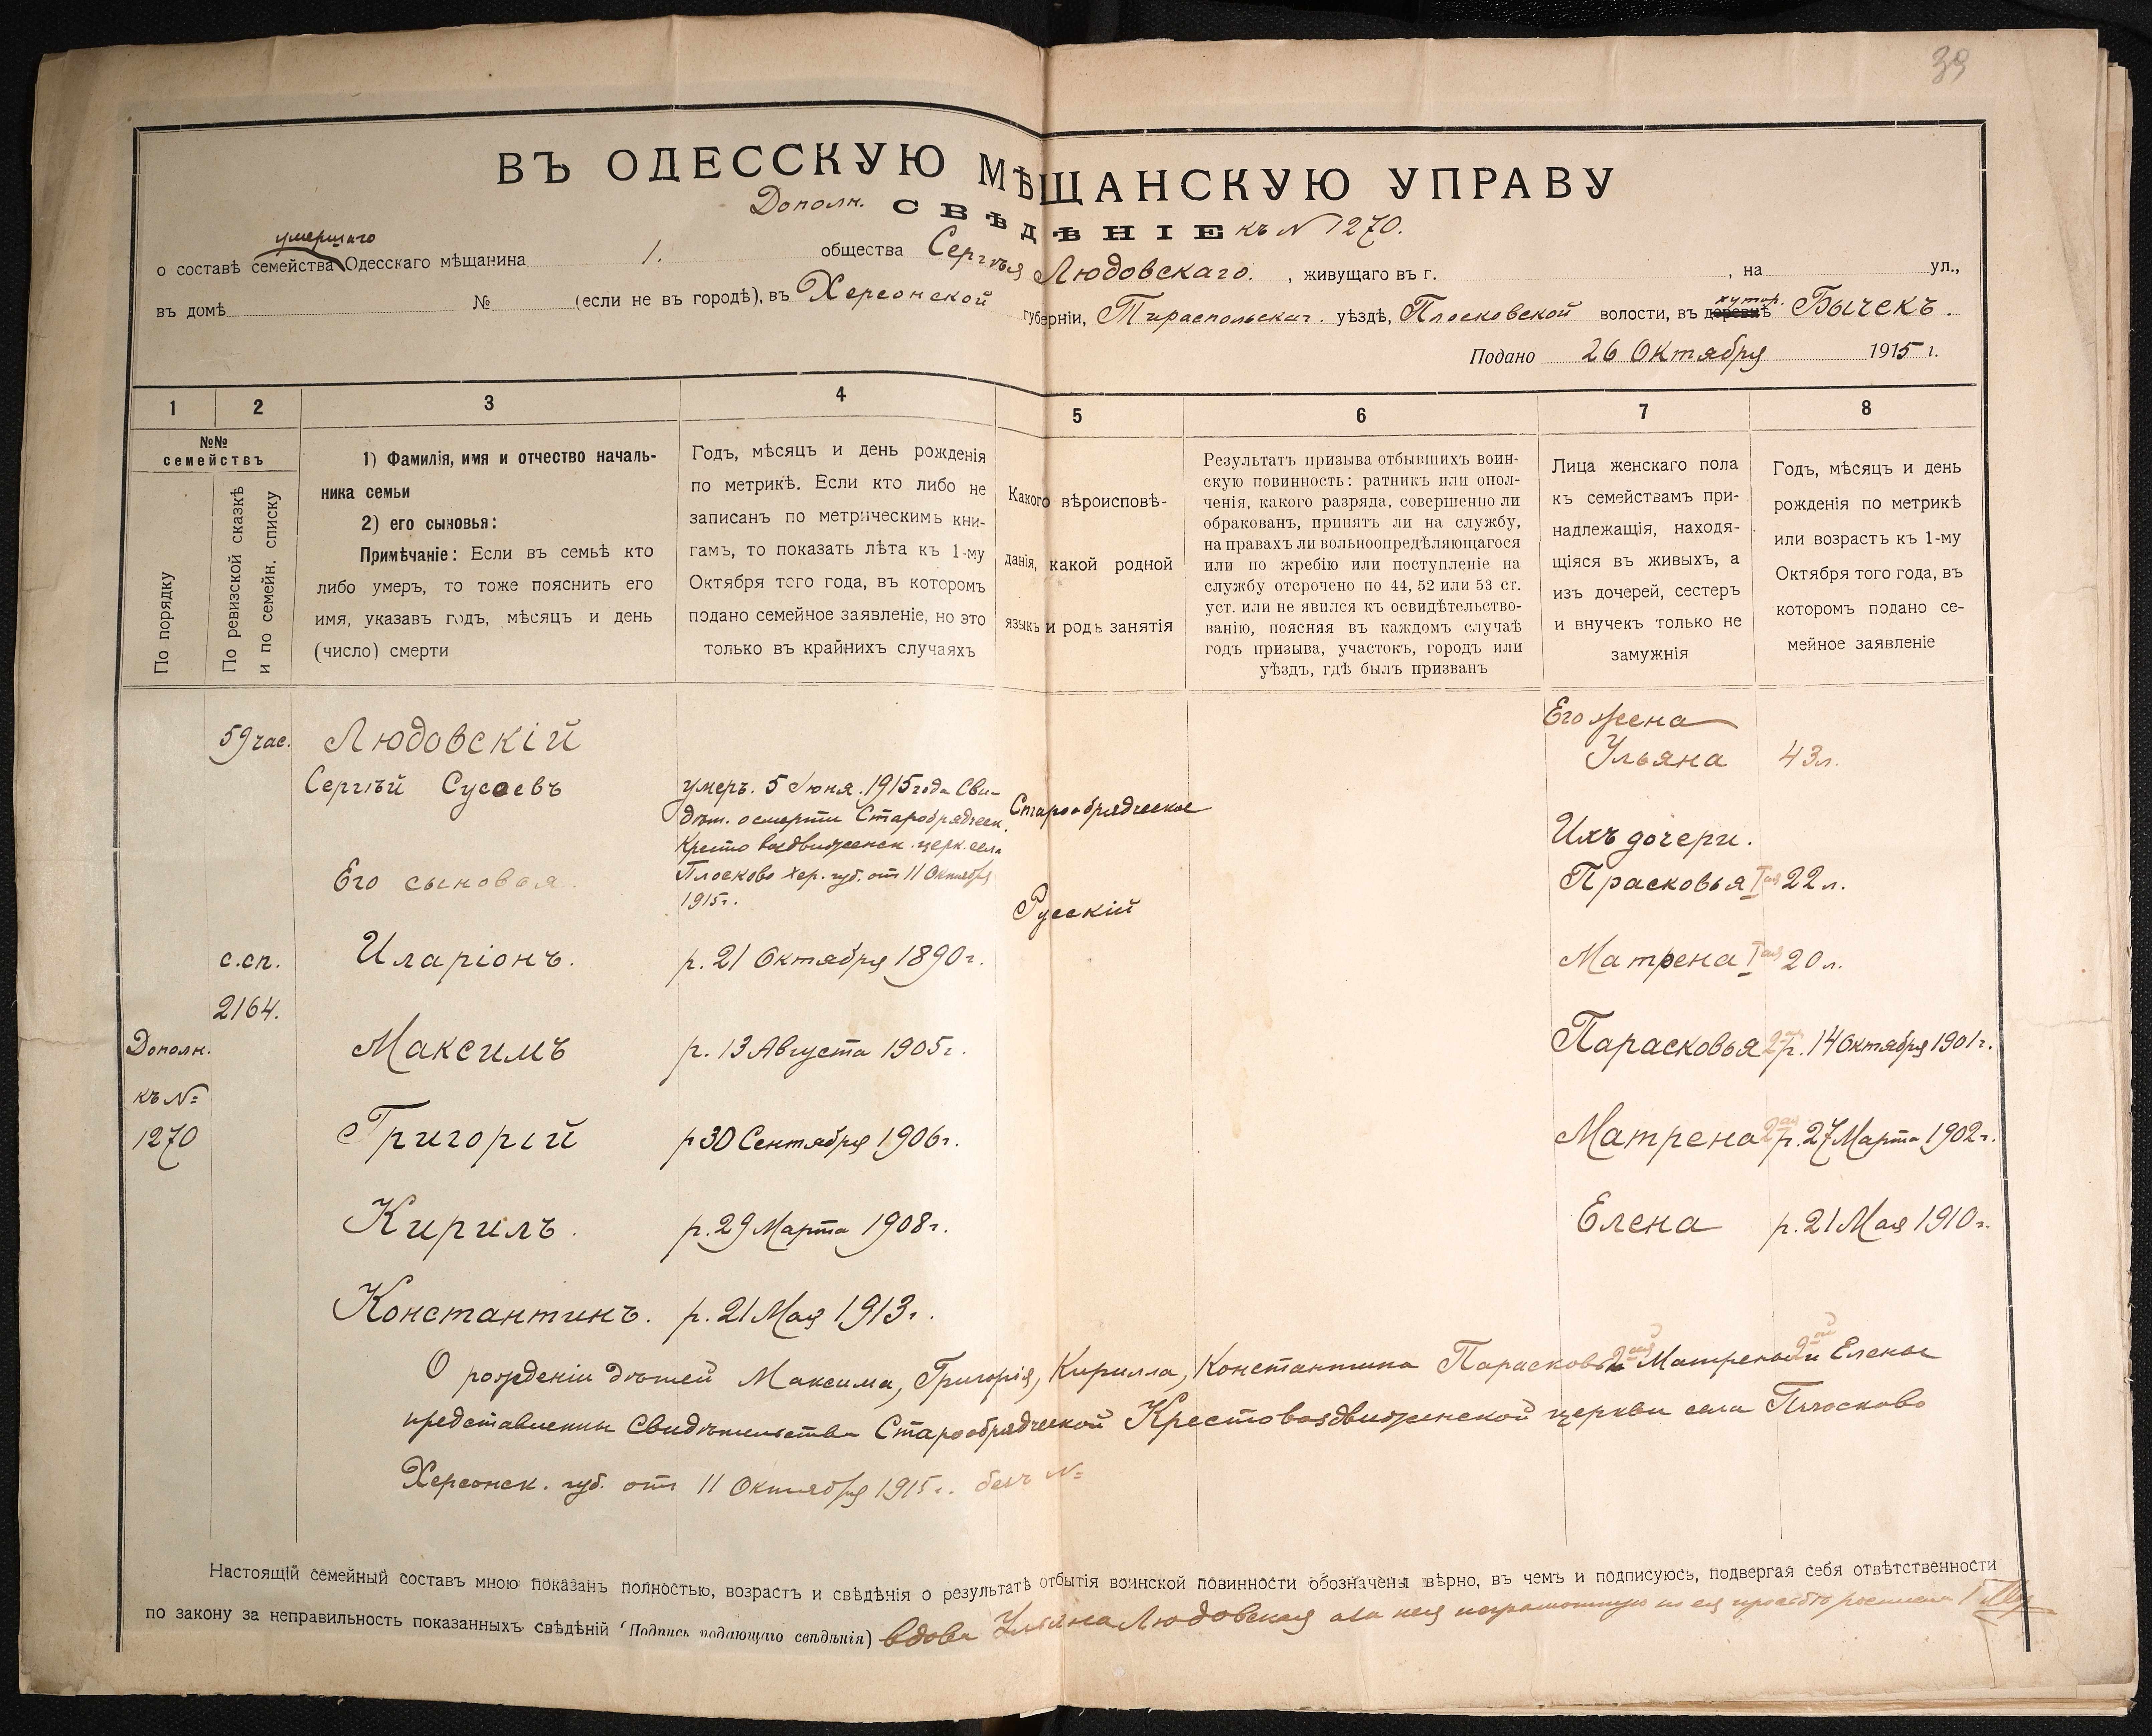 39
ВЪ ОДЕССКУЮ МѢЩАНСКУЮ УПРАВУ
Дополн. СВѢДѢНІЕ къ № 1270.
умершаго
о составѣ семейства Одесскаго мѣщанина 1. общества Сергѣя Людовскаго. , живущаго въ г. , на ул.,
въ домѣ № (если не въ городѣ), въ Херсонской губерніи, Тираспольскаг. уѣздѣ, Плосковской волости, въ деревнѣ хутор. Бычекъ.
Подано 26 Октября 1915 г.
1 2 3 4 5 6 7 8
№№
семействъ
По порядку
По ревизской сказкѣ
и по семейн. списку
1) Фамилія, имя и отчество началь-
ника семьи
2) его сыновья:
Примѣчаніе: Если въ семьѣ кто
либо умеръ, то тоже пояснить его
имя, указавъ годъ, мѣсяцъ и день
(число) смерти
Годъ, мѣсяцъ и день рожденія
по метрикѣ. Если кто либо не
записанъ по метрическимъ кни-
гамъ, то показать лѣта къ 1-му
Октября того года, въ которомъ
подано семейное заявленіе, но это
только въ крайнихъ случаяхъ
Какого вѣроисповѣ-
данія, какой родной
языкъ и родъ занятія
Результатъ призыва отбывшихъ воин-
скую повинность: ратникъ или опол-
ченія, какого разряда, совершенно ли
обракованъ, принятъ ли на службу,
на правахъ ли вольноопредѣляющагося
или по жребію или поступленіе на
службу отсрочено по 44, 52 или 53 ст.
уст. или не явился къ освидѣтельство-
ванію, поясняя въ каждомъ случаѣ
годъ призыва, участокъ, городъ или
уѣздъ, гдѣ былъ призванъ
Лица женскаго пола
къ семействамъ при-
надлежащія, находя-
щіяся въ живыхъ, а
изъ дочерей, сестеръ
и внучекъ только не
замужнія
Годъ, мѣсяцъ и день
рожденія по метрикѣ
или возрастъ къ 1-му
Октября того года, въ
которомъ подано се-
мейное заявленіе
Его жена
59 час. Людовскій Ульяна 43 л.
Сергѣй Сусоевъ
умеръ. 5 Іюня. 1915 года Сви-
дѣт. о смерти Старобрядческ.
Кресто воздвиженск. церк. села
Плосково Хер. губ. от 11 Октября
1915 г.
Старообрядческое
Русскій
Ихъ дочери.
Прасковья Iая 22 л.
Его сыновья.
с.сп. Иларіонъ. р. 21 Октября 1890 г. Матрена Iая 20 л.
2164.
Дополн. Максимъ р. 13 Августа 1905 г. Парасковья 2ая р. 14 Октября 1901 г.
къ №
1270 Григорій р 30 Сентября 1906 г. Матрена 2ая р. 27 Марта 1902 г.
Кирилъ. р. 29 Марта 1908 г. Елена р. 21 Мая 1910 г.
Константинъ. р. 21 Мая 1913 г.
О рожденіи дѣтей Максима, Григорія, Кирилла, Константина Парасковьи 2ой Матрены 2ой и Елены
представленны Свидѣтельства Старообрядческой Крестовоздвиженской церкви села Плосково
Херсонск. губ. от 11 Октября 1915 г. безъ №
Настоящій семейный составъ мною показанъ полностью, возрастъ и свѣдѣнія о результатѣ отбытія воинской повинности обозначены вѣрно, въ чемъ и подписуюсь, подвергая себя отвѣтственности
по закону за неправильность показанныхъ свѣдѣній (Подпись подающаго свѣдѣнія) вдова Ульяна Людовская а за нея неграмотную по ея просьбѣ